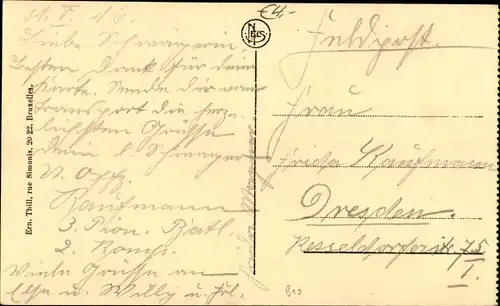 11. V. 16.
Liebe Schwägerin,
Besten Dank für deine
Karte. Sende dir vom
Transport die herz-
lichsten Grüße
Dein l. Schwager
U. Offz.
Kaufmann
3. Pion. Batl.
2. Komp.
Viele Grüße an
Else u. Willy u.
Ern. Thill, rue Simonis, 20-22, Bruxelles.
NELS
Feldpost.
Frau
Frieda Kaufmann
Dresden.
Kesselsdorferstr. 75
I.